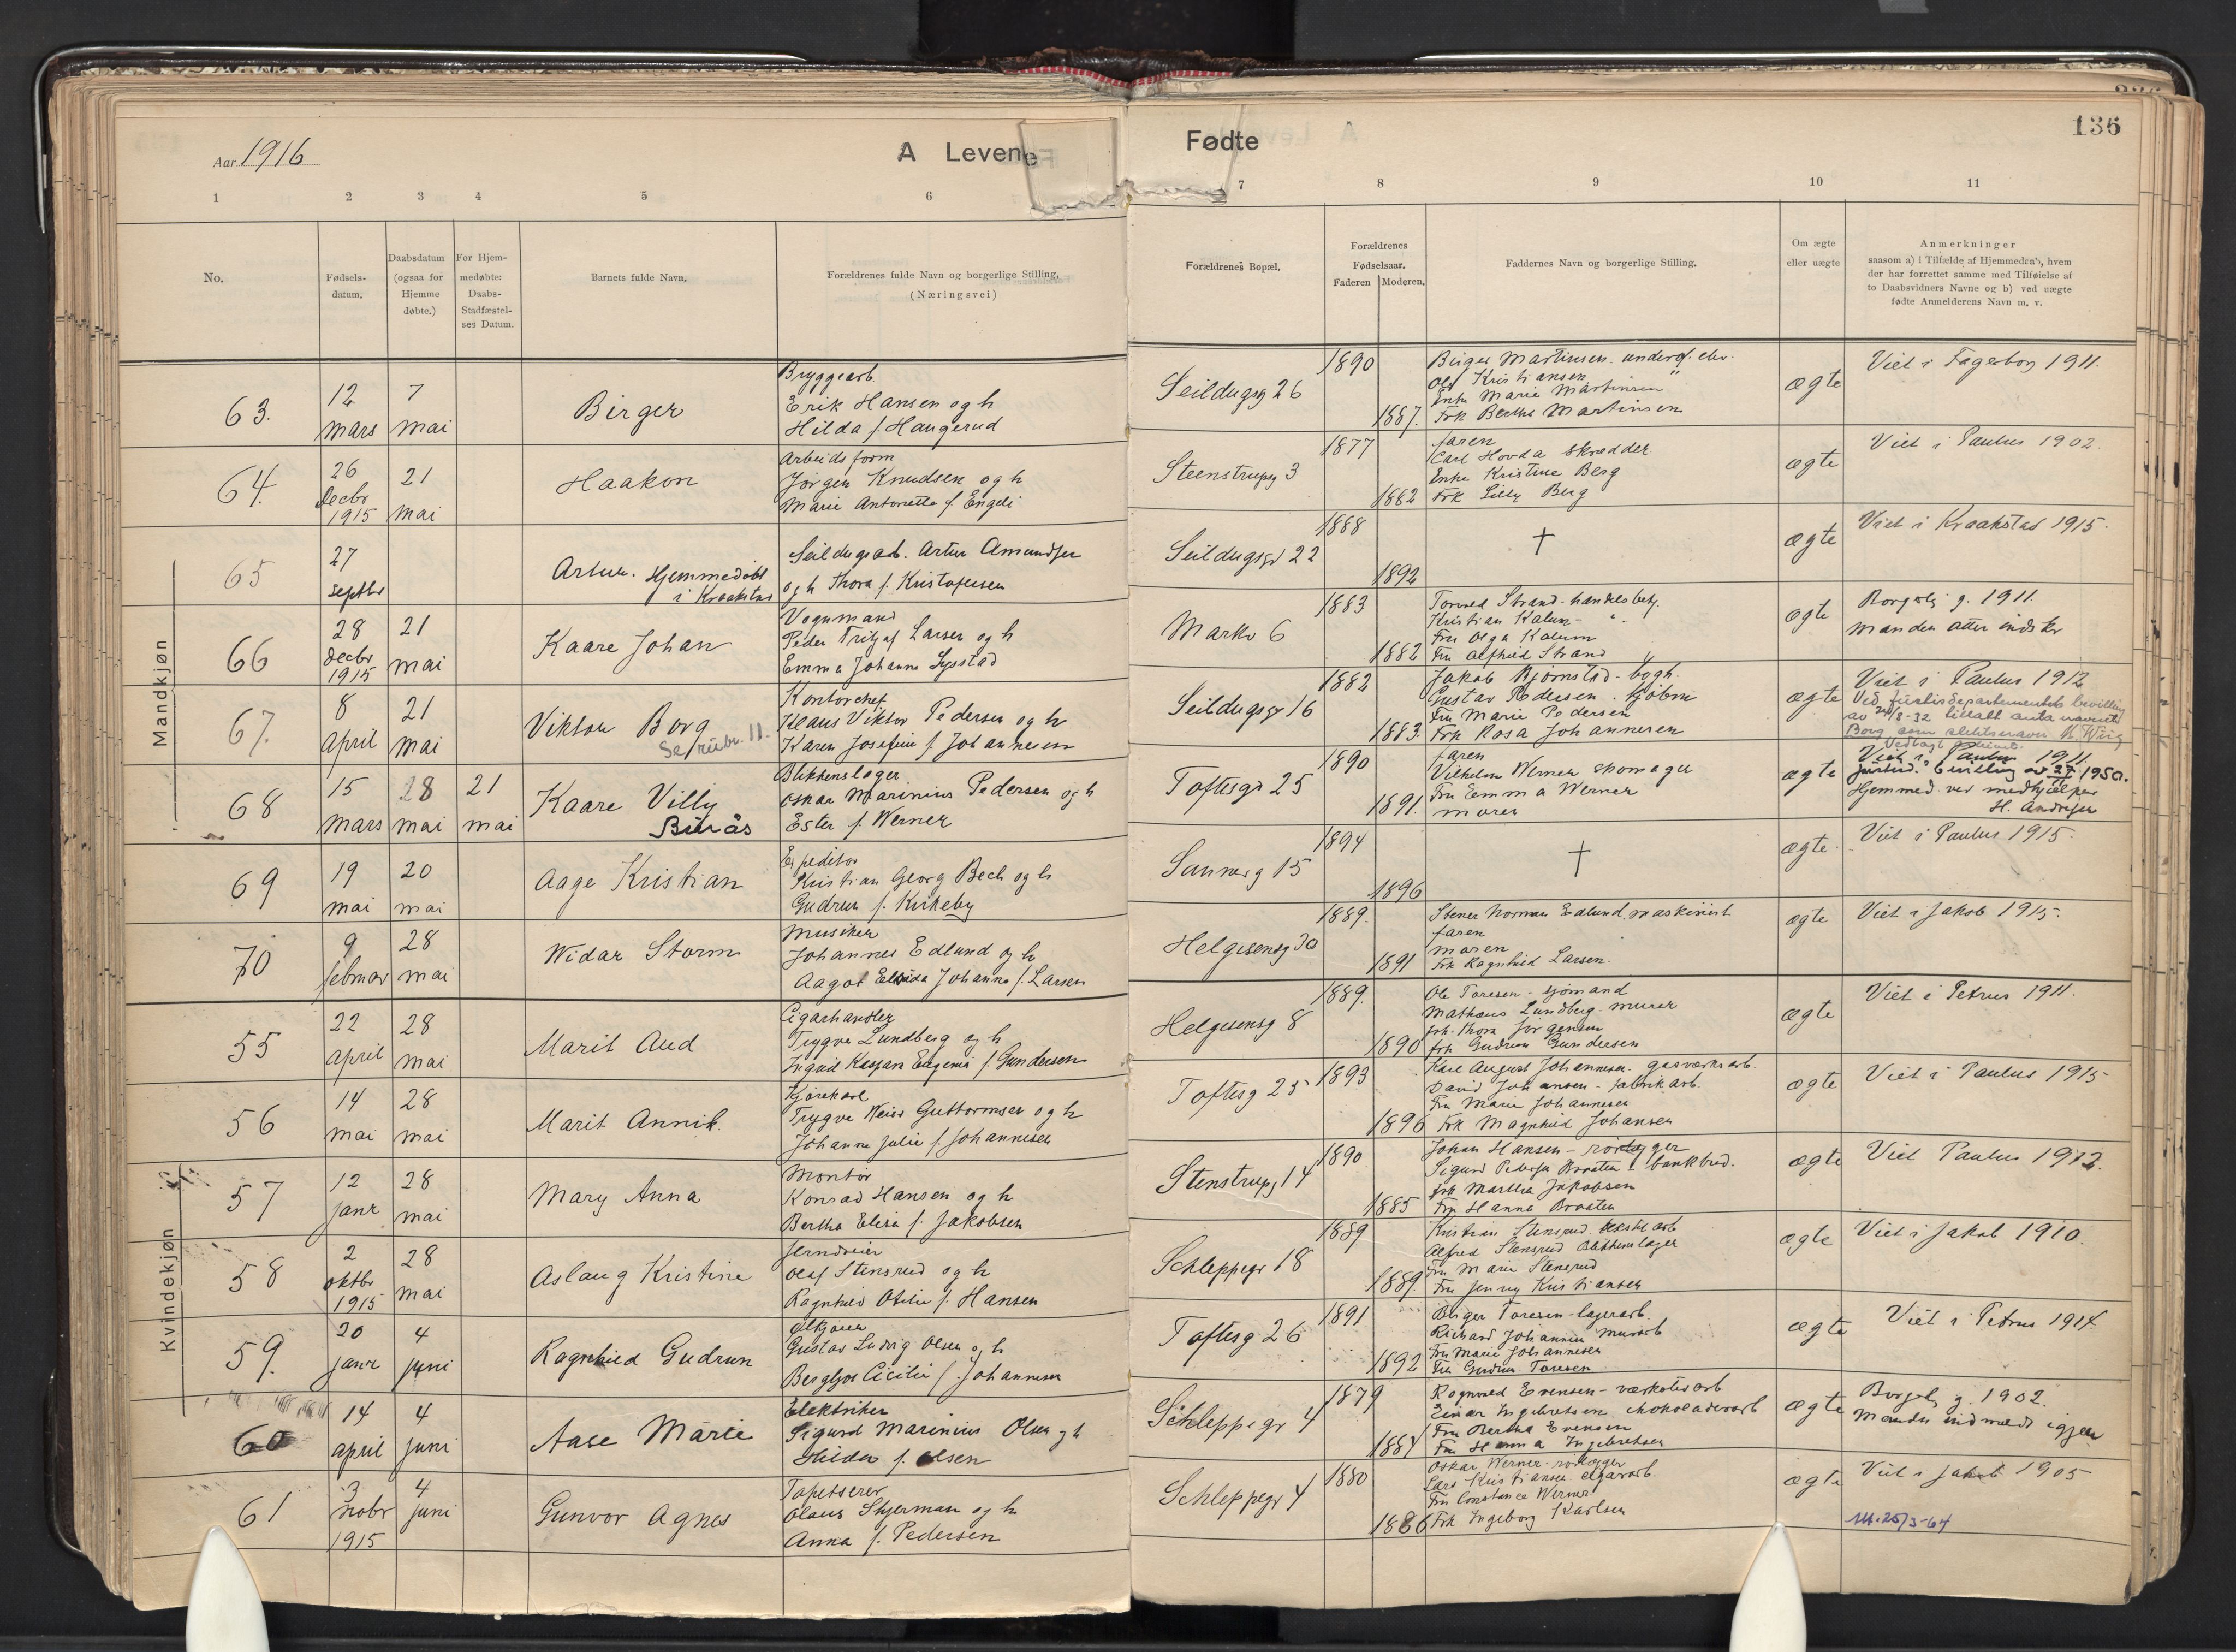 Aar 1916
A Levende
Fødte
136
1 2 3 4 5 6 7 8 9 10 11
No.
Fødsels-
datum.
Daabsdatum
(ogsaa for
Hjemme
døbte.)
For Hjem-
medøbte:
Daabs-
Stadfæstel-
ses Datum.
Barnets fulde Navn.
Forældrenes fulde Navn og borgerlige Stilling.
(Næringsvei)
Forældrenes Bopæl.
Forældrenes
Fødselsaar.
Faderen Moderen.
Faddernes Navn og borgerlige Stilling.
Om ægte
eller uægte
Anmerkninger
saasom a) i Tilfælde af Hjemmedaab, hvem
der har forrettet samme med Tilføielse af
to Daabsvidners Navne og b) ved uægte
fødte Anmelderens Navn m. v.
Mandkjøn
63.
12 mars
7 mai
Birger
Bryggearb.
Erik Hansen og h
Hilda f. Haugerud
Seildugsg 26
1890
1887.
Birger Martinsen - underof. elev.
Ole Kristiansen "
Enke Marie Martinsen
Frk Bertha Martinsen
ægte
Viet i Fagerborg 1911.
64.
26 Decbr 1915
21 mai
Haakon
Arbeidsform
Jørgen Knudsen og h
Marie Antonette f. Engeli
Steenstrupsg 3
1877
1882
faren
Carl Hovda skrædder
Enke Kristine Berg
Frk Lilly Berg
ægte
Viet i Paulus 1902.
65
27 septbr
Artur. Hjemmedøbt
i Kraakstad
Seildugsarb. Artur Amundsen
og h Thora f. Kristofersen
Seildugsgd 22
1888
1892
†
ægte
Viet i Kraakstad 1915.
66
28 decbr 1915
21 mai
Kaare Johan
Vognmand
Peder Tritjof Larsen og h
Emma Johanne Lysstad
Markv 6
1883
1882
Torvald Strand - handelsbetj.
Kristian Kalum - ".
Fru Olga Kalum
Fru Alfhild Strand
ægte
Borgelig g. 1911.
67.
8 april
21 mai
Viktor Borg
Se rubr. 11.
Kontorchef
Klaus Viktor Pedersen og h
Karen Josefine f. Johannesen
Seildugsgt 16
1882
1883.
Jakob Bjørnstad - bogh.
Gustav Pedersen - kjøbm
Fru Marie Pedersen
Frk Rosa Johannesen
ægte
Viet i Paulus 1912
Ved Justisdepartementets bevilling
av 24/8-32 tillatt anta navnet
Borg som slektsnavn
68
15 mars
28 mai
21 mai
Kaare Villy
Burås
Blikkenslager
Oskar Marinius Pedersen og h
Ester f. Werner
Toftesgd 25
1890
1891.
faren
Vilhelm Werner skomager
Fru Emma Werner
moren
ægte
Viet i Paulus 1911
Hjemmed. ved medhjælper
H. Andresen
69
19 mai
20 mai
Aage Kristian
Expeditør
Kristian Georg Bech og h
Gudrun f. Kirkeby
Sannerg 15
1894
1896
†
ægte.
Viet i Paulus 1915.
70
9 februar
28 mai
Widar Storm
Musiker
Johannes Edlund og h
Aagot Elvida Johanne f. Larsen
Helgesensg 30
1889.
1891
Stener Norman Edlund maskinist
faren
moren
Frk Ragnhild Larsen.
ægte
Viet i Jakob 1915.
Kvindekjøn
55
22 april
28 mai
Marit Aud
Cigarhandler
Trygve Lundberg og h
Ingrid Kaspara Eugenie f. Gundersen
Helgesensg 8
1889.
1890
Ole Toresen - sjømand
Mathæus Lundberg - murer
Frk. Thora Jørgensen
Frk Gudrun Gundersen
ægte
Viet i Petrus 1911.
56
14 mai
28 mai
Marit Annik.
Kjørekarl
Trygve Weier Guttormsen og h
Johanne Julie f. Johannesen
Toftesg 25
1893
1896
Karl August Johannesen - gasværksarb.
David Johansen - fabrikarb.
Fru Marie Johannesen
Frk Magnhild Johansen
ægte
Viet i Paulus 1915
57
12 janr
28 mai
Mary Anna
Montør
Konrad Hansen og h
Bertha Elise f. Jakobsen
Stenstrupsg 14
1890
1885
Johan Hansen - rørlægger
Sigurd Pedersen Braaten - bankbud.
Frk Martha Jakobsen
Fru Hanna Braaten
ægte
Viet Paulus 1912.
58
2 oktbr 1915
28 mai
Aslaug Kristine
Jerndreier
Olaf Stensrud og h
Ragnhild Otilie f. Hansen
Schleppegr 18
1889
1889.
Kristian Stensrud. tekstilarb
Alfred Stensrud Blikkenslager
Fru Marie Stensrud
Fru Jenny Kristiansen
ægte
Viet i Jakob 1910.
59.
20 janr
4 juni
Ragnhild Gudrun
Ølkjører
Gustav Ludvig Olsen og h
Bergljot Cicilie f. Johannesen
Toftesg 26
1891
1892
Birger Toresen - lagerarb.
Richard Johannesen murarb
Fru Marie Johannesen
Fru Gudrun Toresen
ægte
Viet i Petrus 1914.
60
14 april
4 juni
Aase Marie
Elektriker
Sigurd Marinius Olsen og h
Hilda f. Olsen
Schleppegr 4
1879
1884
Ragnvald Evensen - værkstedsarb
Einar Ingebretsen chokoladearb
Fru Bertha Evensen
Fru Hanna Ingebretsen
ægte
Borgelig g. 1902.
Manden indmeldt igjen
61
3 nobr 1915
4 juni
Gunvor Agnes
Tapetserer
Olaus Skjerman og h
Anna f. Pedersen
Schleppegr 4
1880
1886
Oskar Werner - rørlægger
Lars Kristiansen - cigararb.
Fru Constance Werner
Frk Ingeborg Karlsen
ægte
Viet i Jakob 1905
Utt. 25/3-64